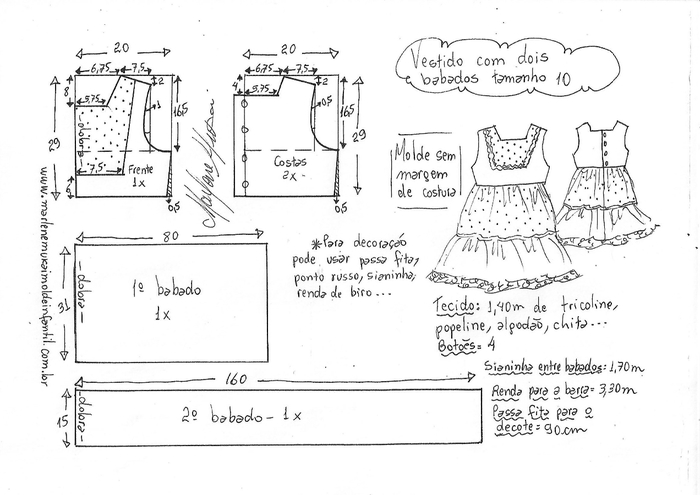 Vestido com dois
babados tamanho 10
20
6,75
7,5
8
2
3,75
1
16,5
29
dobra
7,5
Frente
1x
6
0,5
20
6,75
7,5
4
3,75
2
0,5
16,5
29
Costas
2x
0,5
Molde sem
margem
de costura
www.marlenemukaimoldeinfantil.com.br
80
31
-dobra-
1º babado
1x
*Para decoração
pode usar passa fita,
ponto russo, sianinha,
renda de biro...
Tecido: 1,40m de tricoline,
popeline, algodão, chita...
Botões= 4
Sianinha entre babados: 1,70m
Renda para a barra= 3,30m
Passa fita para o
decote= 90.cm
160
15
-dobra-
2º babado- 1x